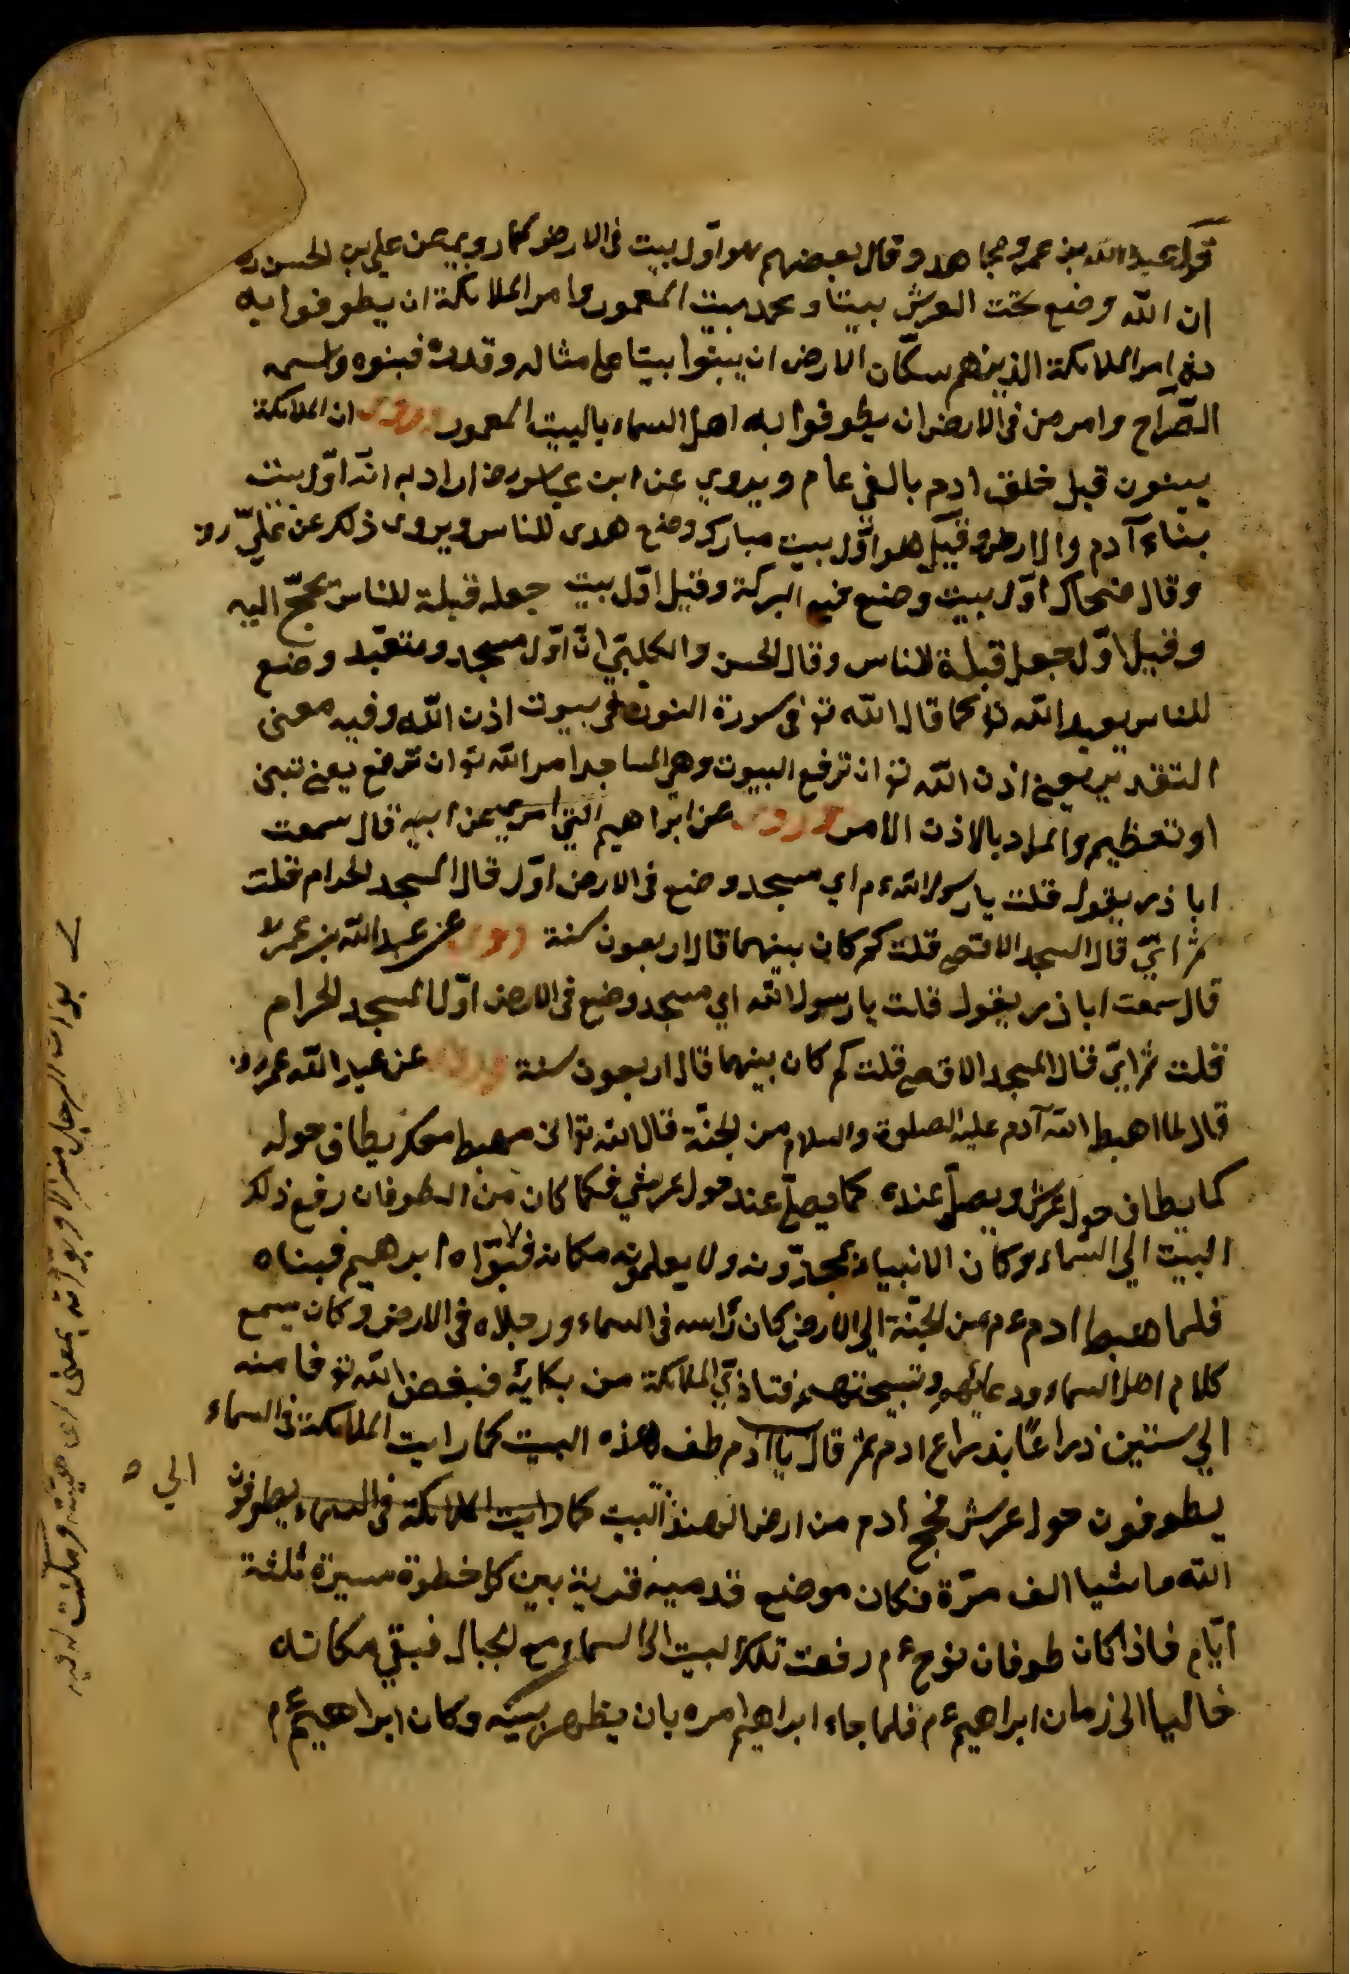 قول عبد الله بن عمرو مجاهد وقال بعضهم هو اول بيت فى الارض كما روى عن على بن الحسن
ان الله وضع تحت العرش بيتا و بيت المعمور وامر الملائكة ان يطوفوا به
امر الملائكة الذينهم سكّان الارض ان يبنوا بيتا على مثاله وقدره فبنوه واسمه
الصّراح وامر من فى الارض ان يطوفوا به اهل السماء بالبيت المعمور وروى ان الملائكة
يبنون قبل خلق ادم بالفى عام ويروي عن ابن عباس رض اراد به انّه اوّل بيت
بناء آدم والارض وقيل هو اوّل بيت مبارك وضع هدى للناس ويروى ذلك عن علىّ رض
وقال ضحاك اوّل بيت وضع فيه البركة وقيل اوّل بيت جعله قبلة للناس يحجّ اليه
وقيل اوّل جعل قبلة للناس وقال الحسن والكلبىّ انّ اوّل مسجد ومتعبّد وضع
للناس يعبد الله تع كما قال الله تع فى سورة النور فى بيوت اذن الله وفيه معنى
التقدير يعنى اذن الله تع ان ترفع البيوت وهى المساجد امر الله تع ان ترفع يعنى تبنى
او تعظيم والمراد بالاذن الامر وروى عن ابراهيم التي عن ابيه قال سمعت
ابا ذر يقول قلت يا رسول الله ءم اي مسجد وضع فى الارض اوّل قال المسجد الحرام قلت
ثم ايّ قال المسجد الاقصى قلت كم كان بينهما قال اربعون سنة روى عن عبد الله بن عمر
قال سمعت ابا ذر يقول قلت يا رسول الله اي مسجد وضع فى الارض اوّل المسجد الحرام
فقلت ثم ايّ قال المسجد الاقصى قلت كم كان بينهما قال اربعون سنة وروى عن عبد الله عمرو
قال لما اهبط الله آدم عليه الصلوة والسلام من الجنّة قال الله تع انى مهبط معك يطاف حوله
كما يطاف حول عرشى ويصلّى عنده كما يصلّى عند حول عرشي فكما كان من الطوفان رفع ذلك
البيت الي السماء وكان الانبياء يحجّونه ولا يعلمونه مكانه فبوّاه ابرهيم فبناه
فلما هبط ادم ءم من الجنّة الي الارض كان رأسه فى السماء ورجلاه فى الارض وكان يسمع
كلام اهل السماء ودعائهم وتسبيحتهم فتاذّى الملائكة من بكائه فبغض الله تع قامته
الي ستين ذراعًا بذراع ادم ثم قال يا آدم طف هذه البيت كما رايت الملائكة فى السماء
يطوفون حول عرش فحج ادم من ارض الهند البيت كما رايت الملائكة فى السماء يطوفون الي
الله ماشيا الف مرّة فكان موضع قدميه قرية بين كل خطوة مسيرة ثلثة
ايّام فاذا كان طوفان نوح ءم رفعت تلك البيت الى السماء مع الجبال فبقي مكانه
خاليا الى زمان ابراهيم ءم فلما جاء ابراهيم امره بان يظهر بيته وكان ابراهيم ءم